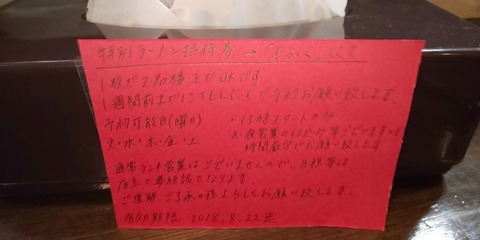 特別ラーメン招待券→「よふく」にて
1枚で2名様までOKです。
1週間前までに
ご予約お願い致します。
予約可能日(曜日)
・15時スタートのみ
火・水・木・金・土
夜営業の仕込み等ございますので
時間厳守でお願い致します
通常ランチ営業はございませんので、日程等は
店主と要相談となります。
ご理解、ご了承の程よろしくお願い致します。
有効期限 2018.8.22迄